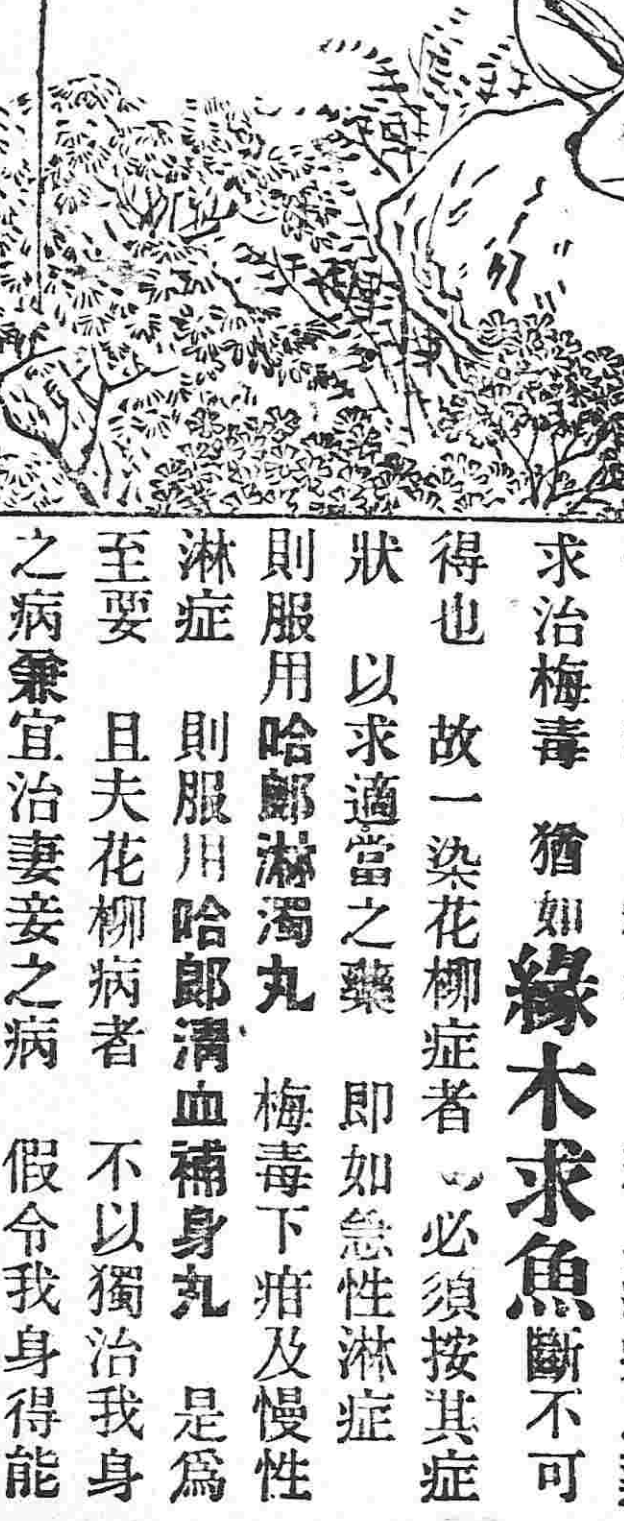 求治梅毒　猶如緣木求魚斷不可
得也　故一染花柳症者　必須按其症
狀　以求適當之藥　即如急性淋症
則服用哈郎淋濁丸　梅毒下疳及慢性
淋症　則服用哈郎清血補身丸　是為
至要　且夫花柳病者　不以獨治我身
之病兼宜治妻妾之病　假令我身得能